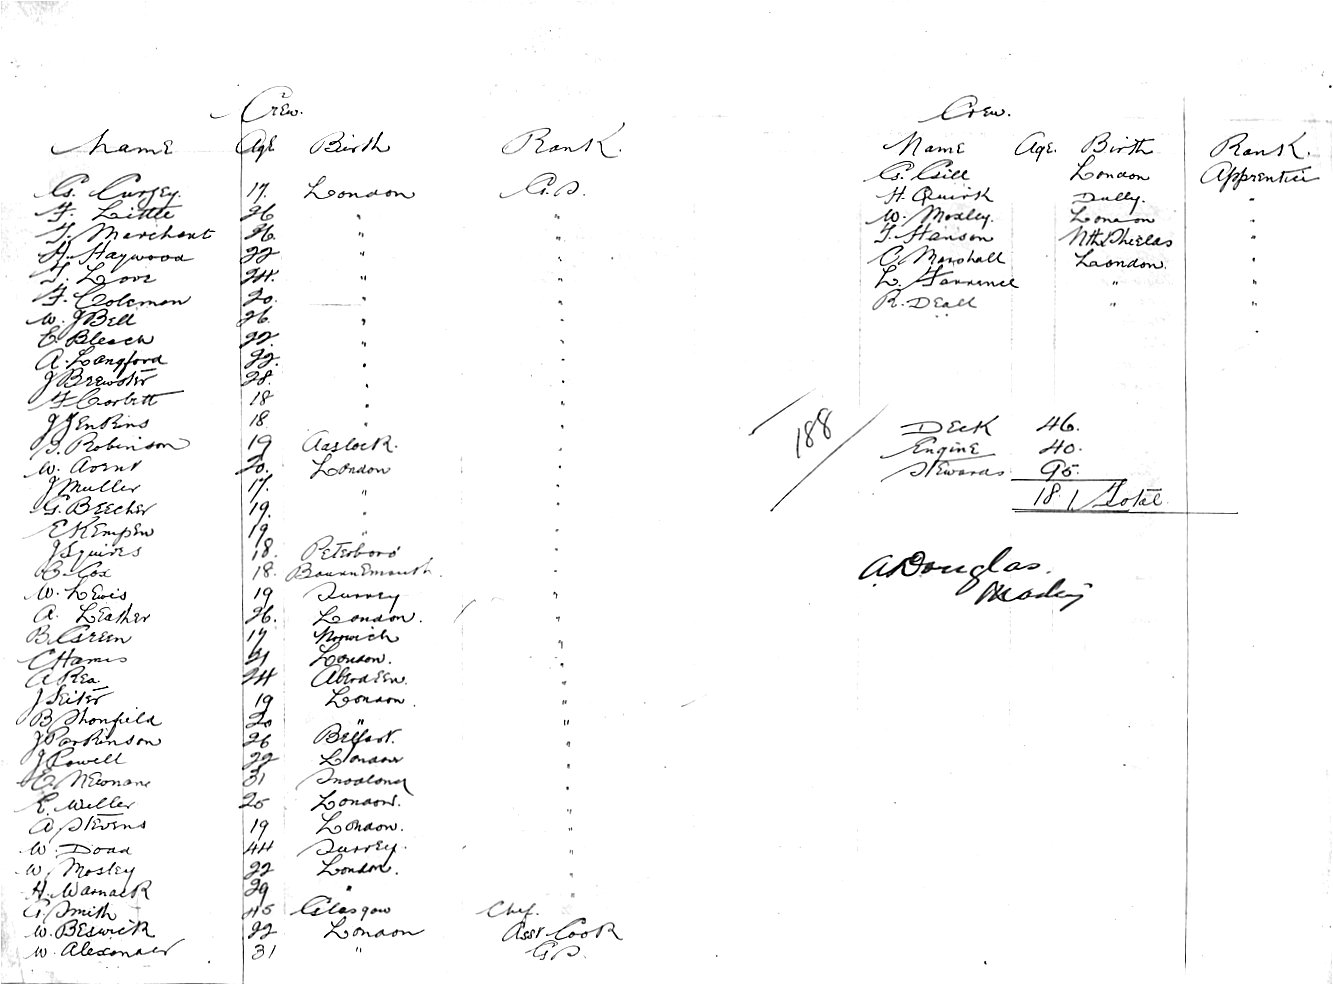 Crew.
Name Age Birth Rank.
G. Cursey. 17. London G.S.
F. Little 26 " "
T. Merchant 26. " "
H. Haywood 22 " "
T. Love 24. " "
F. Coleman 20. " "
W. J Bell 26. " "
E. Bleach 22. " "
A. Langford 22. " "
J Brewster 28. " "
F Corbett 18 " "
J Jenkins 18. " "
J. Robinson 19 "
W. 20. London "
J Muller 17. " "
G. Beecher 19. " "
E Kempen 19. " "
J Squires 18. Peterboro' "
C. Cox 18. Bournemouth. "
W. Lewis 19 Surrey "
A. Leather 26. London. "
B. Green 17 Norwich "
C Hames 21 London. "
A Rea. 24 Aberdeen. "
J Seiter 19 London "
B Shonfield 20 " "
J Parkinson 26 Belfast. "
J Powell 22 London "
E. Newnane 31 "
E. Willer 20 London. "
A Stevens 19 London. "
W. Doad 44 Surrey. "
W Mosley 22 London. "
H. Warnack 29 " "
G. Smith 45 Glasgow Chef.
W. Beswick 22 London Asst Cook
W. Alexander 31 " G S.
Crew.
Name Age. Birth Rank.
G. Gill London Apprentice
H. Quirk "
W. Moxley. London "
T. Hanson Nth Shields "
C Marshall London. "
L. Farrence " "
R. Deall " "
"
188
Deck 46.
Engine 40.
Stewards 95.
181 Total
A. Douglas.